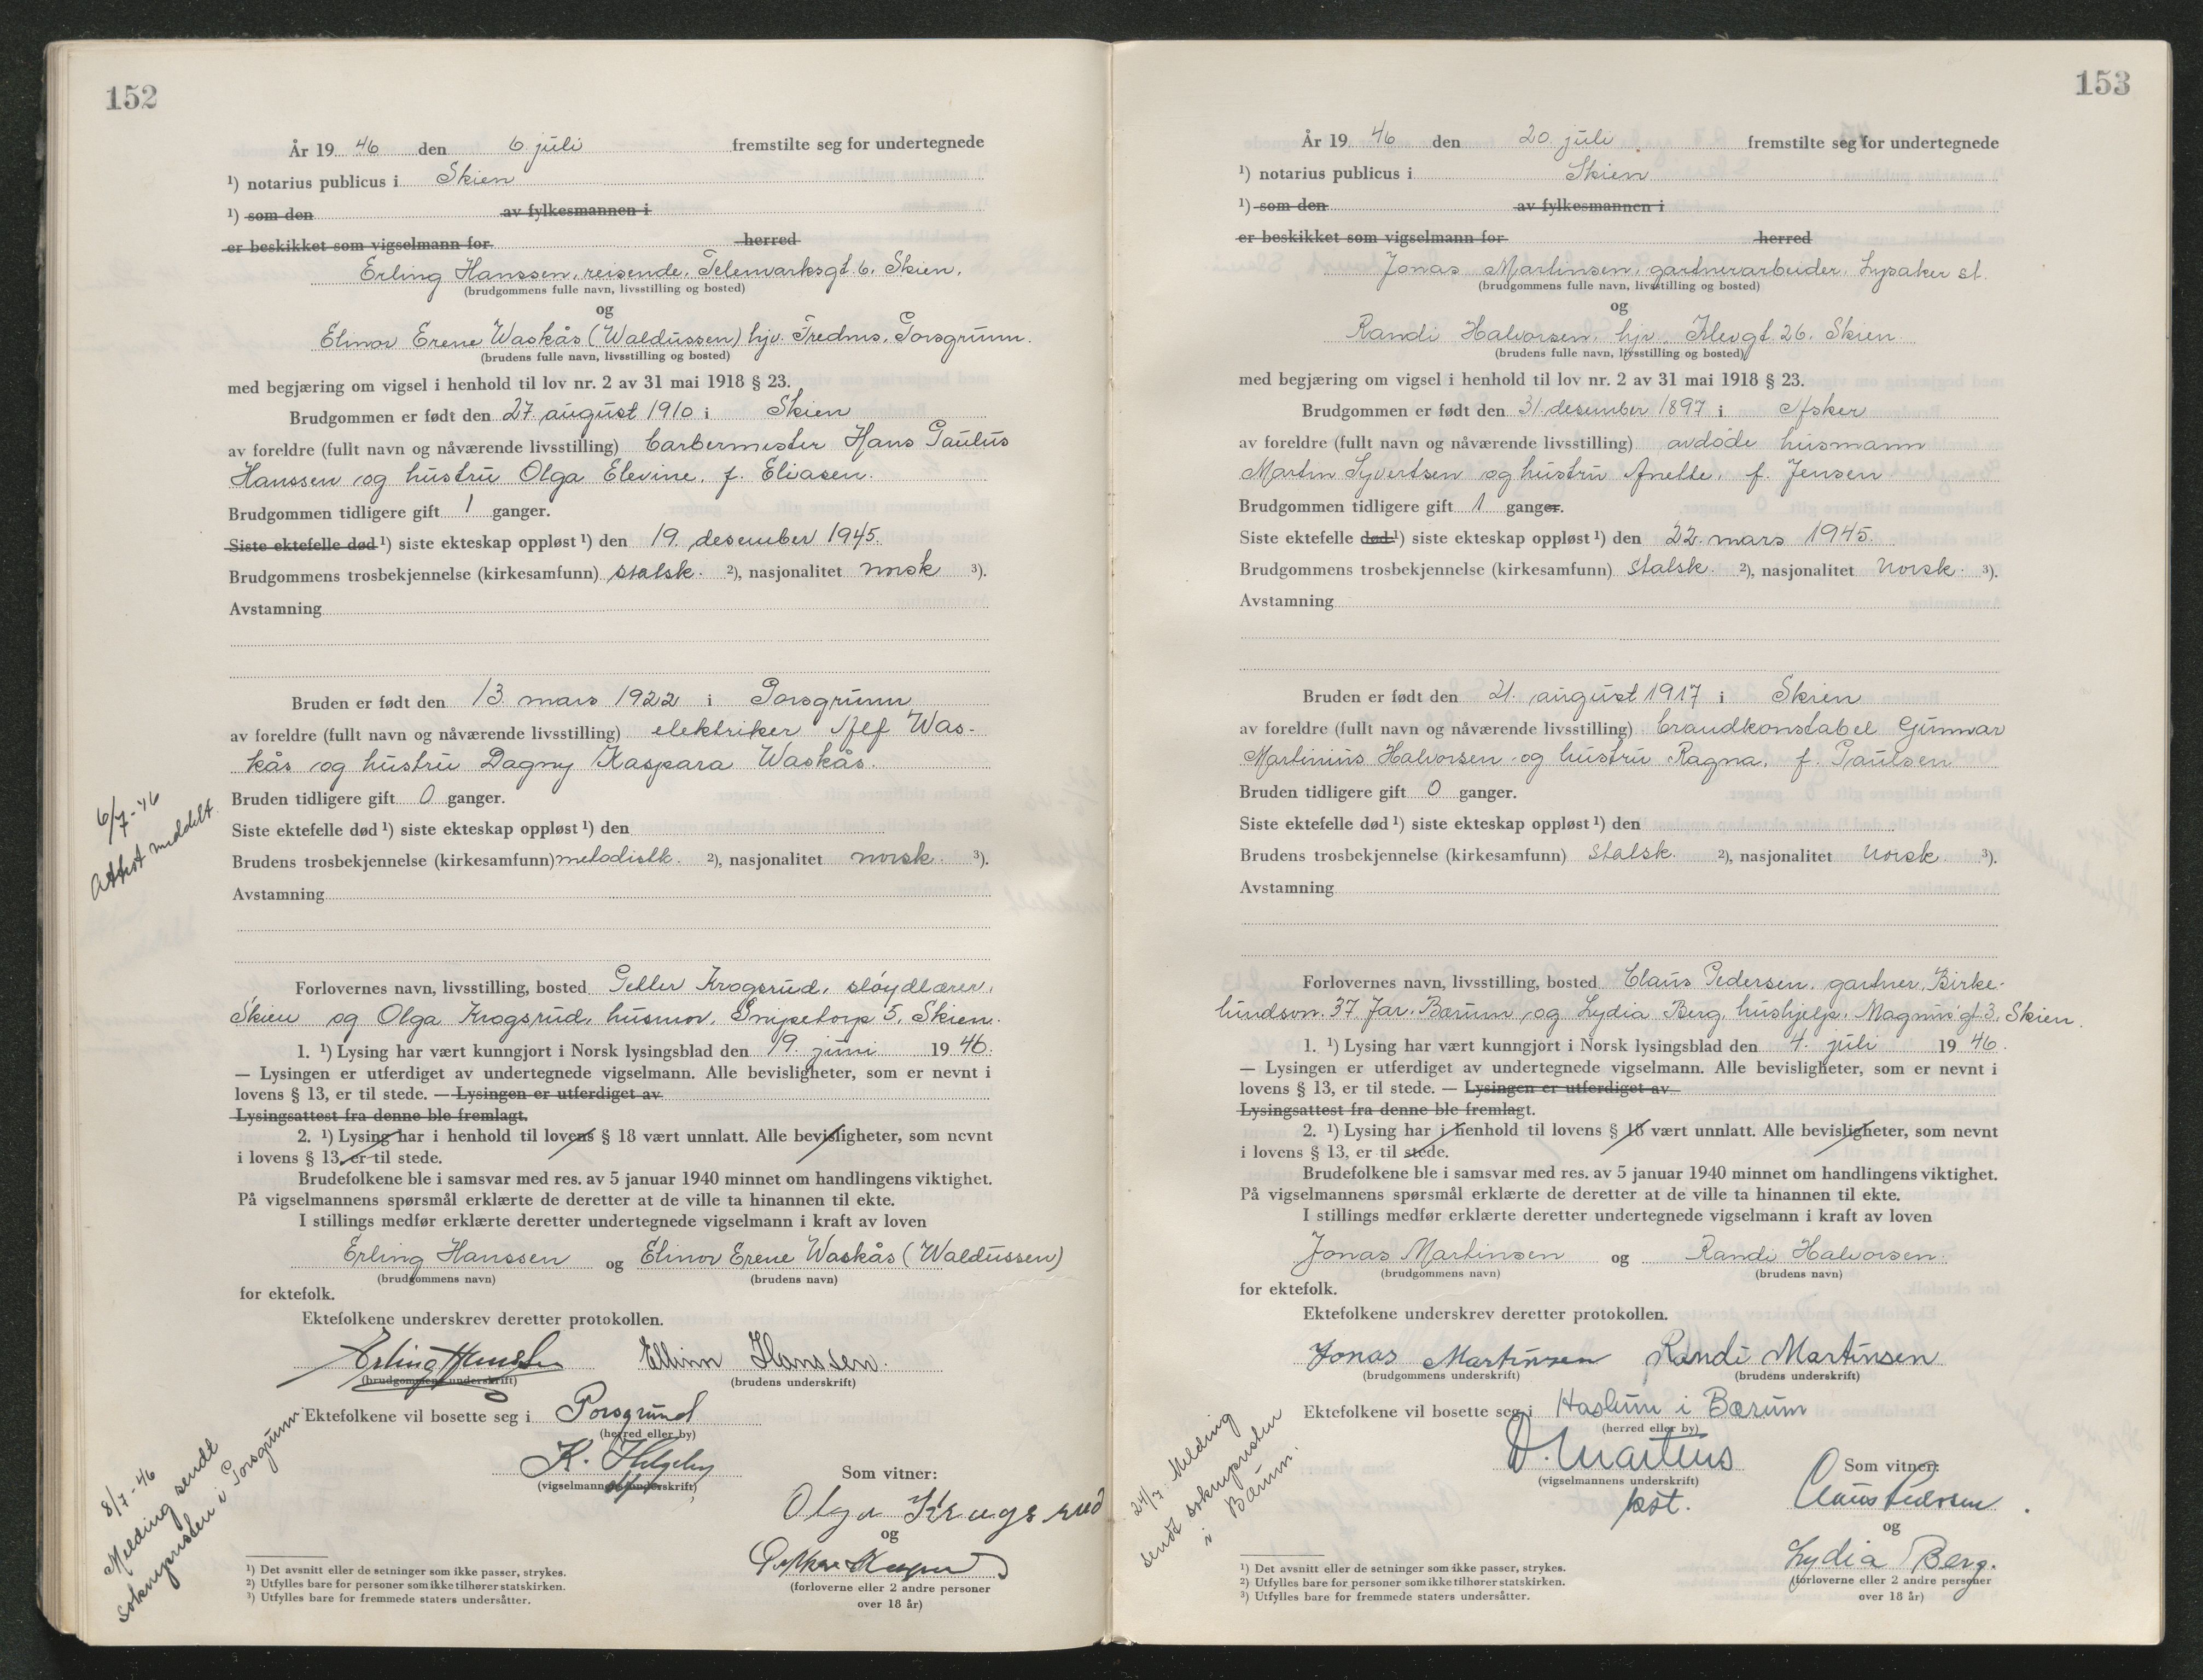 152
År 19 46 den 6. juli fremstilte seg for undertegnede
¹) notarius publicus i Skien
¹) som den av fylkesmannen i
er beskikket som vigselmann for herred
Erling Hanssen, reisende, Telemarksgt. 6, Skien.
(brudgommens fulle navn, livsstilling og bosted)
og
Elinor Erene Waskås (Waldussen) hjv. Fredms. Porsgrunn.
(brudens fulle navn, livsstilling og bosted)
med begjæring om vigsel i henhold til lov nr. 2 av 31 mai 1918 § 23.
Brudgommen er født den 27. august 1910 i Skien
av foreldre (fullt navn og nåværende livsstilling) barbermester Hans Paulus
Hanssen og hustru Olga Elevine, f. Eliasen.
Brudgommen tidligere gift 1 ganger.
Siste ektefelle død ¹) siste ekteskap oppløst ¹) den 19. desember 1945.
Brudgommens trosbekjennelse (kirkesamfunn) statsk. ²), nasjonalitet norsk ³).
Avstamning
Bruden er født den 13. mars 1922 i Porsgrunn
av foreldre (fullt navn og nåværende livsstilling) elektriker Alf Was-
kås og hustru Dagny Kaspara Waskås.
Bruden tidligere gift 0 ganger.
Siste ektefelle død ¹) siste ekteskap oppløst ¹) den
Brudens trosbekjennelse (kirkesamfunn) metodistk. ²), nasjonalitet norsk. ³).
Avstamning
6/7-46
Attest meddelt.
Forlovernes navn, livsstilling, bosted Petter Krogsrud, sløydlærer,
Skien og Olga Krogsrud, husmor, Snipetorp 5, Skien.
1. ¹) Lysing har vært kunngjort i Norsk lysingsblad den 19. juni 19 46.
— Lysingen er utferdiget av undertegnede vigselmann. Alle bevisligheter, som er nevnt i
lovens § 13, er til stede. — Lysingen er utferdiget av
Lysingsattest fra denne ble fremlagt.
2. ¹) Lysing har i henhold til lovens § 18 vært unnlatt. Alle bevisligheter, som nevnt
i lovens § 13, er til stede.
Brudefolkene ble i samsvar med res. av 5 januar 1940 minnet om handlingens viktighet.
På vigselmannens spørsmål erklærte de deretter at de ville ta hinannen til ekte.
I stillings medfør erklærte deretter undertegnede vigselmann i kraft av loven
Erling Hanssen og Elinor Erene Waskås (Waldussen)
(brudgommens navn) (brudens navn)
for ektefolk.
Ektefolkene underskrev deretter protokollen.
Erling Hanssen Ellinor Hanssen.
(brudgommens underskrift) (brudens underskrift)
Ektefolkene vil bosette seg i Porsgrund
(herred eller by)
K. Helgeby
(vigselmannens underskrift)
Som vitner:
Olga Krogsrud
og
(forloverne eller 2 andre personer
over 18 år)
8/7-46
Melding sendt
soknepresten i Porsgrunn
¹) Det avsnitt eller de setninger som ikke passer, strykes.
²) Utfylles bare for personer som ikke tilhører statskirken.
³) Utfylles bare for fremmede staters undersåtter.
153
År 19 46 den 20. juli fremstilte seg for undertegnede
¹) notarius publicus i Skien
¹) som den av fylkesmannen i
er beskikket som vigselmann for herred
Jonas Martinsen, gartnerarbeider, Lysaker st.
(brudgommens fulle navn, livsstilling og bosted)
og
Randi Halvorsen, hjv. Klevgt. 26, Skien
(brudens fulle navn, livsstilling og bosted)
med begjæring om vigsel i henhold til lov nr. 2 av 31 mai 1918 § 23.
Brudgommen er født den 31. desember 1897 i Asker
av foreldre (fullt navn og nåværende livsstilling) avdøde husmann
Martin Syvertsen og hustru Anette, f. Jensen
Brudgommen tidligere gift 1 ganger.
Siste ektefelle død ¹) siste ekteskap oppløst ¹) den 22. mars 1945.
Brudgommens trosbekjennelse (kirkesamfunn) statsk. ²), nasjonalitet norsk. ³).
Avstamning
Bruden er født den 21. august 1917 i Skien
av foreldre (fullt navn og nåværende livsstilling) brandkonstabel Gunnar
Martinius Halvorsen og hustru Ragna, f. Paulsen
Bruden tidligere gift 0 ganger.
Siste ektefelle død ¹) siste ekteskap oppløst ¹) den
Brudens trosbekjennelse (kirkesamfunn) statsk. ²), nasjonalitet norsk. ³).
Avstamning
Forlovernes navn, livsstilling, bosted Claus Pedersen, gartner, Birke-
lundsvn. 37 Jar. Bærum og Lydia Berg, hushjelp, Magnus'gt. 3, Skien.
1. ¹) Lysing har vært kunngjort i Norsk lysingsblad den 4. juli 19 46.
— Lysingen er utferdiget av undertegnede vigselmann. Alle bevisligheter, som er nevnt i
lovens § 13, er til stede. — Lysingen er utferdiget av
Lysingsattest fra denne ble fremlagt.
2. ¹) Lysing har i henhold til lovens § 18 vært unnlatt. Alle bevisligheter, som nevnt
i lovens § 13, er til stede.
Brudefolkene ble i samsvar med res. av 5 januar 1940 minnet om handlingens viktighet.
På vigselmannens spørsmål erklærte de deretter at de ville ta hinannen til ekte.
I stillings medfør erklærte deretter undertegnede vigselmann i kraft av loven
Jonas Martinsen og Randi Halvorsen.
(brudgommens navn) (brudens navn)
for ektefolk.
Ektefolkene underskrev deretter protokollen.
Jonas Martinsen Randi Martinsen
(brudgommens underskrift) (brudens underskrift)
Ektefolkene vil bosette seg i Haslum i Bærum
(herred eller by)
D. Martens
(vigselmannens underskrift)
kst.
Som vitner:
Claus Pedersen
og
Lydia Berg.
(forloverne eller 2 andre personer
over 18 år)
24/7. Melding
sendt soknepresten
i Bærum.
¹) Det avsnitt eller de setninger som ikke passer, strykes.
²) Utfylles bare for personer som ikke tilhører statskirken.
³) Utfylles bare for fremmede staters undersåtter.